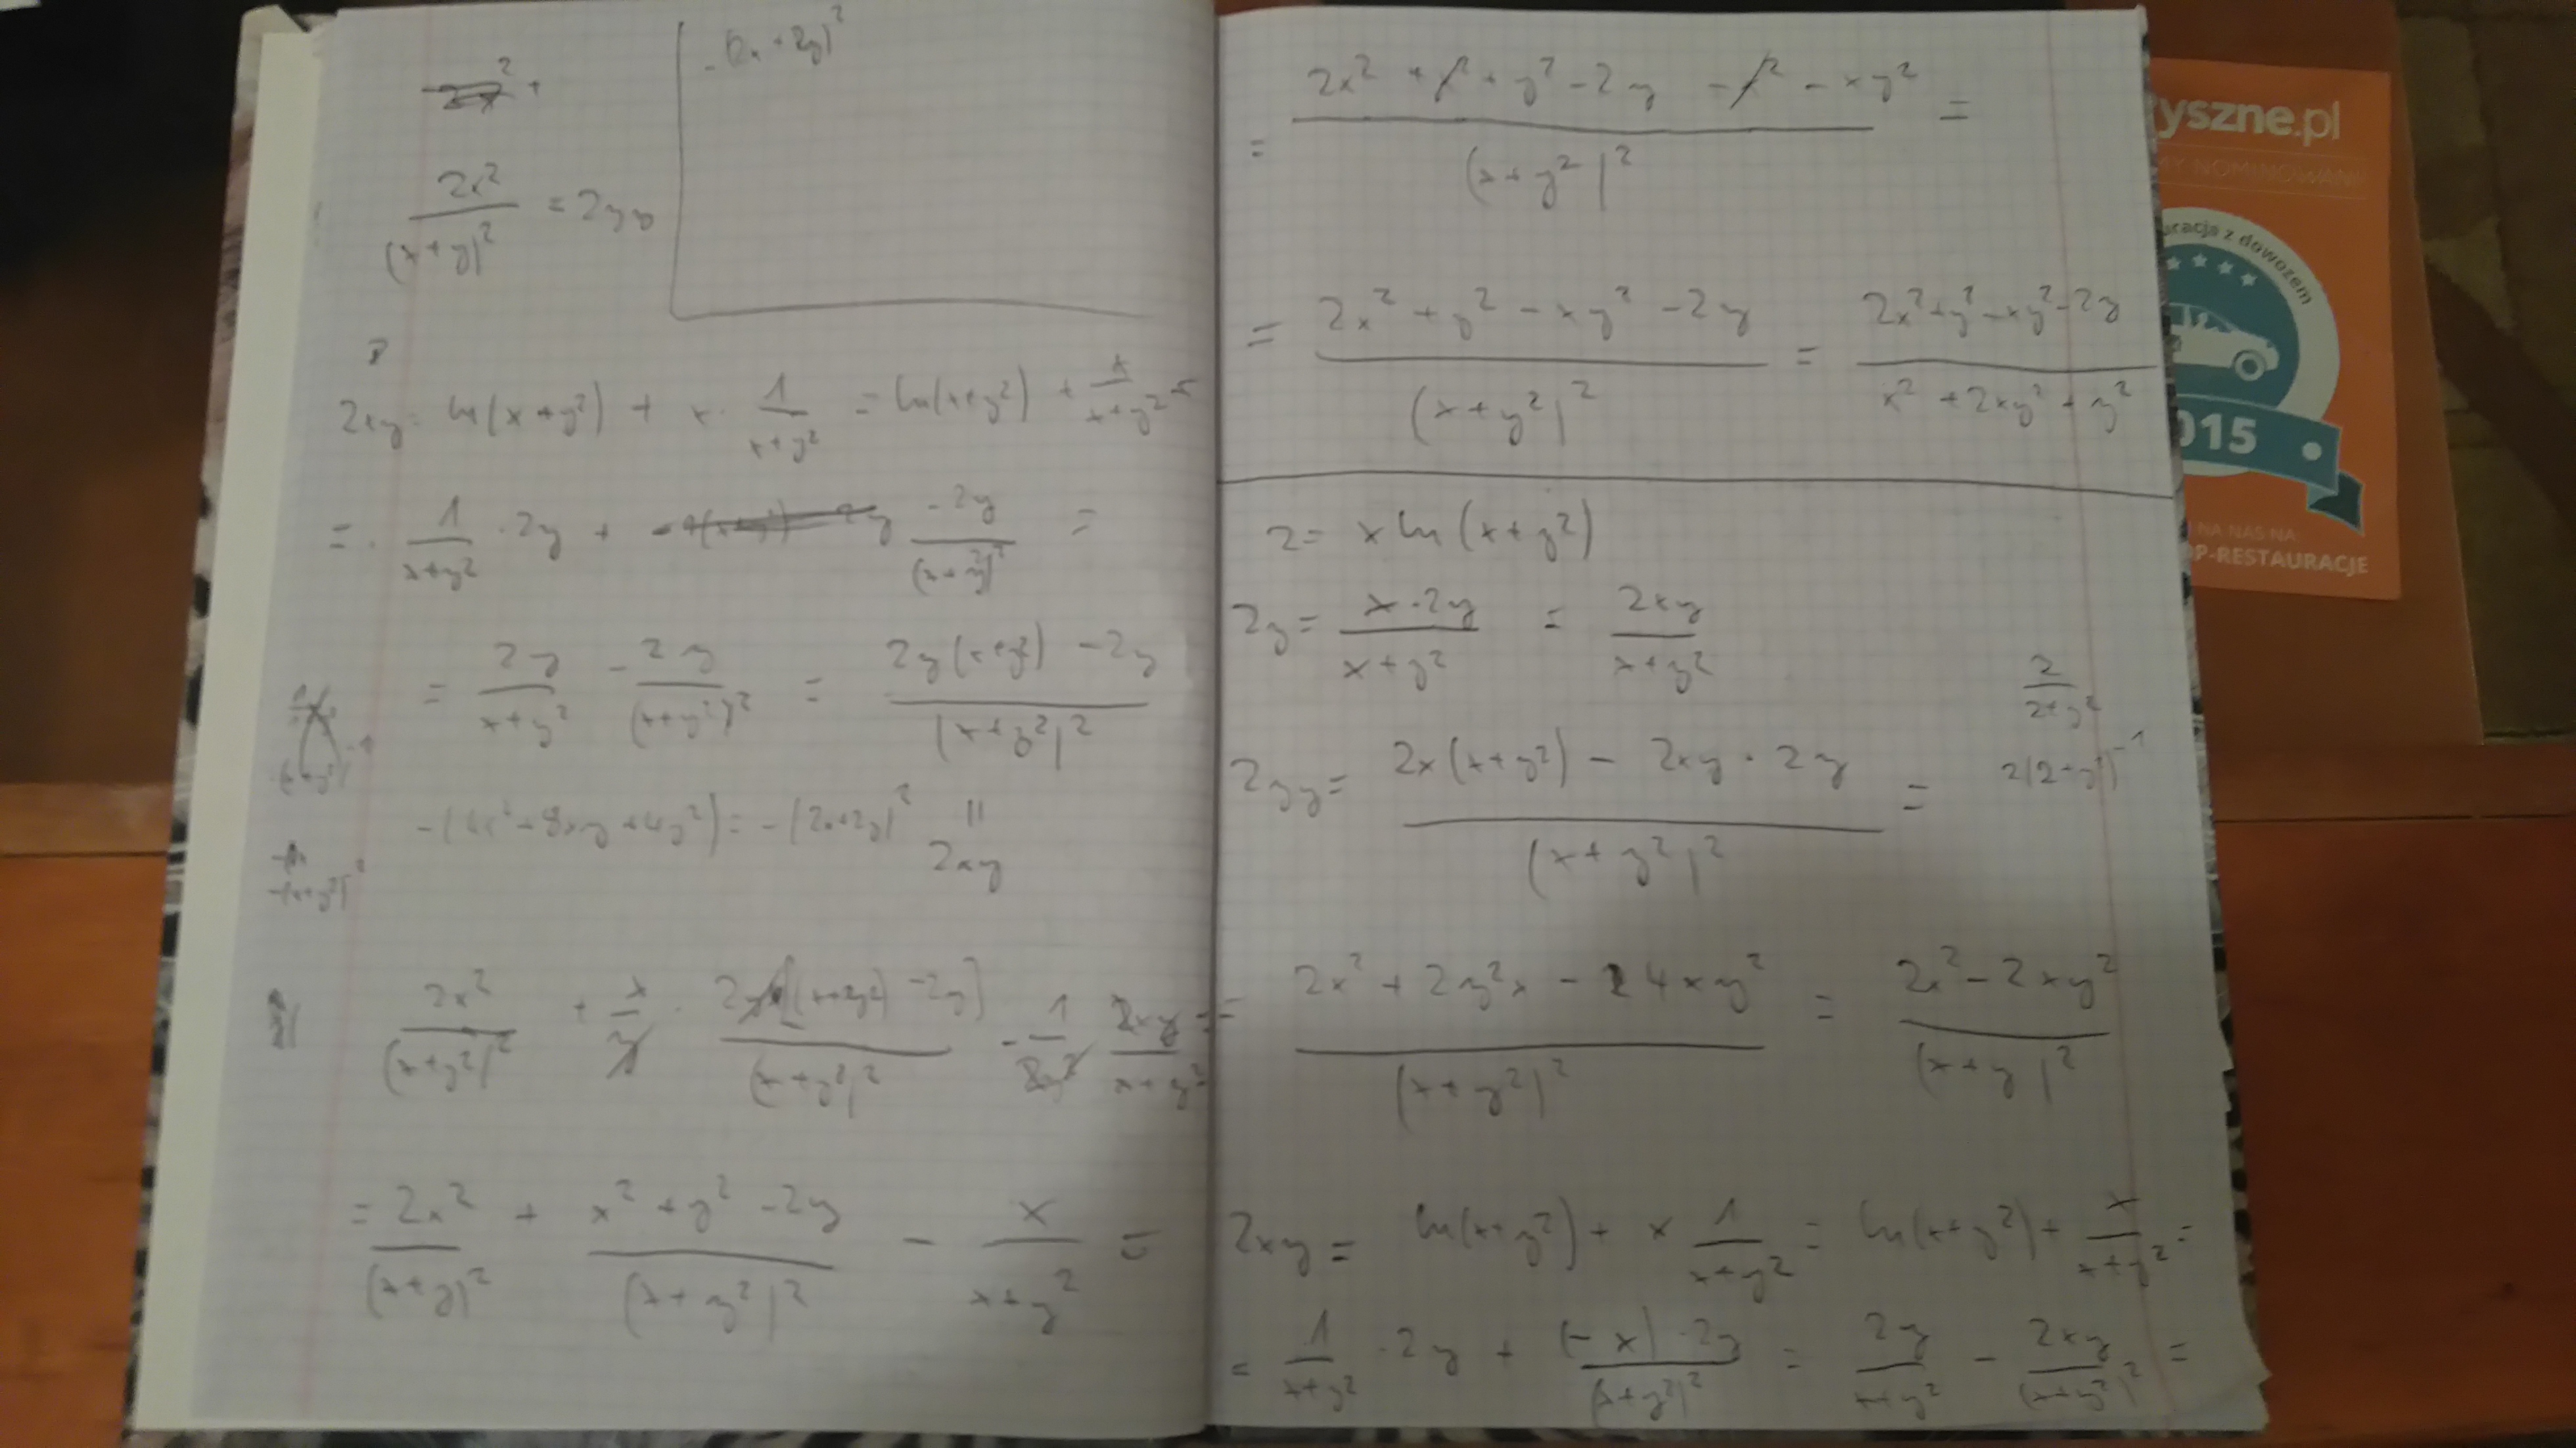 - (2x + 2y)²
2x²/(x+y)² = 2yy
2xy = ln(x+y²) + x · 1/(x+y²) = ln(x+y²) + x/(x+y²) =
= · 1/(x+y²) · 2y + -2y/(x+y²)² =
= 2y/(x+y²) - 2y/(x+y²)² = (2y(x+y²) - 2y)/(x+y²)²
-(4x²+8xy+4y²) = -(2x+2y)² || 2xy
2x²/(x+y²)² + x/y · 2y[(x+y²) - 2y]/(x+y²)² - 1/ 2xy/(x+y²) =
= 2x²/(x+y)² + (x²+y²-2y)/(x+y²)² - x/(x+y²) =
= (2x² + x² + y² - 2y - x² - xy²)/(x+y²)² =
= (2x² + y² - xy² - 2y)/(x+y²)² = (2x²+y²-xy²-2y)/(x²+2xy²+y²)
z = x ln(x+y²)
zy = x·2y/(x+y²) = 2xy/(x+y²)
2/(2+y²)
2(2+y²)⁻¹
zyy = (2x(x+y²) - 2xy · 2y)/(x+y²)² =
= (2x² + 2y²x - 4xy²)/(x+y²)² = (2x² - 2xy²)/(x+y)²
zxy = ln(x+y²) + x 1/(x+y²) = ln(x+y²) + x/(x+y²) =
= 1/(x+y²) · 2y + (-x)·2y/(x+y²)² = 2y/(x+y²) - 2xy/(x+y²)² =
yszne.pl
MY NOMINOWANI
uracja z dowozem
015
NA NAS NA
OP-RESTAURACJE